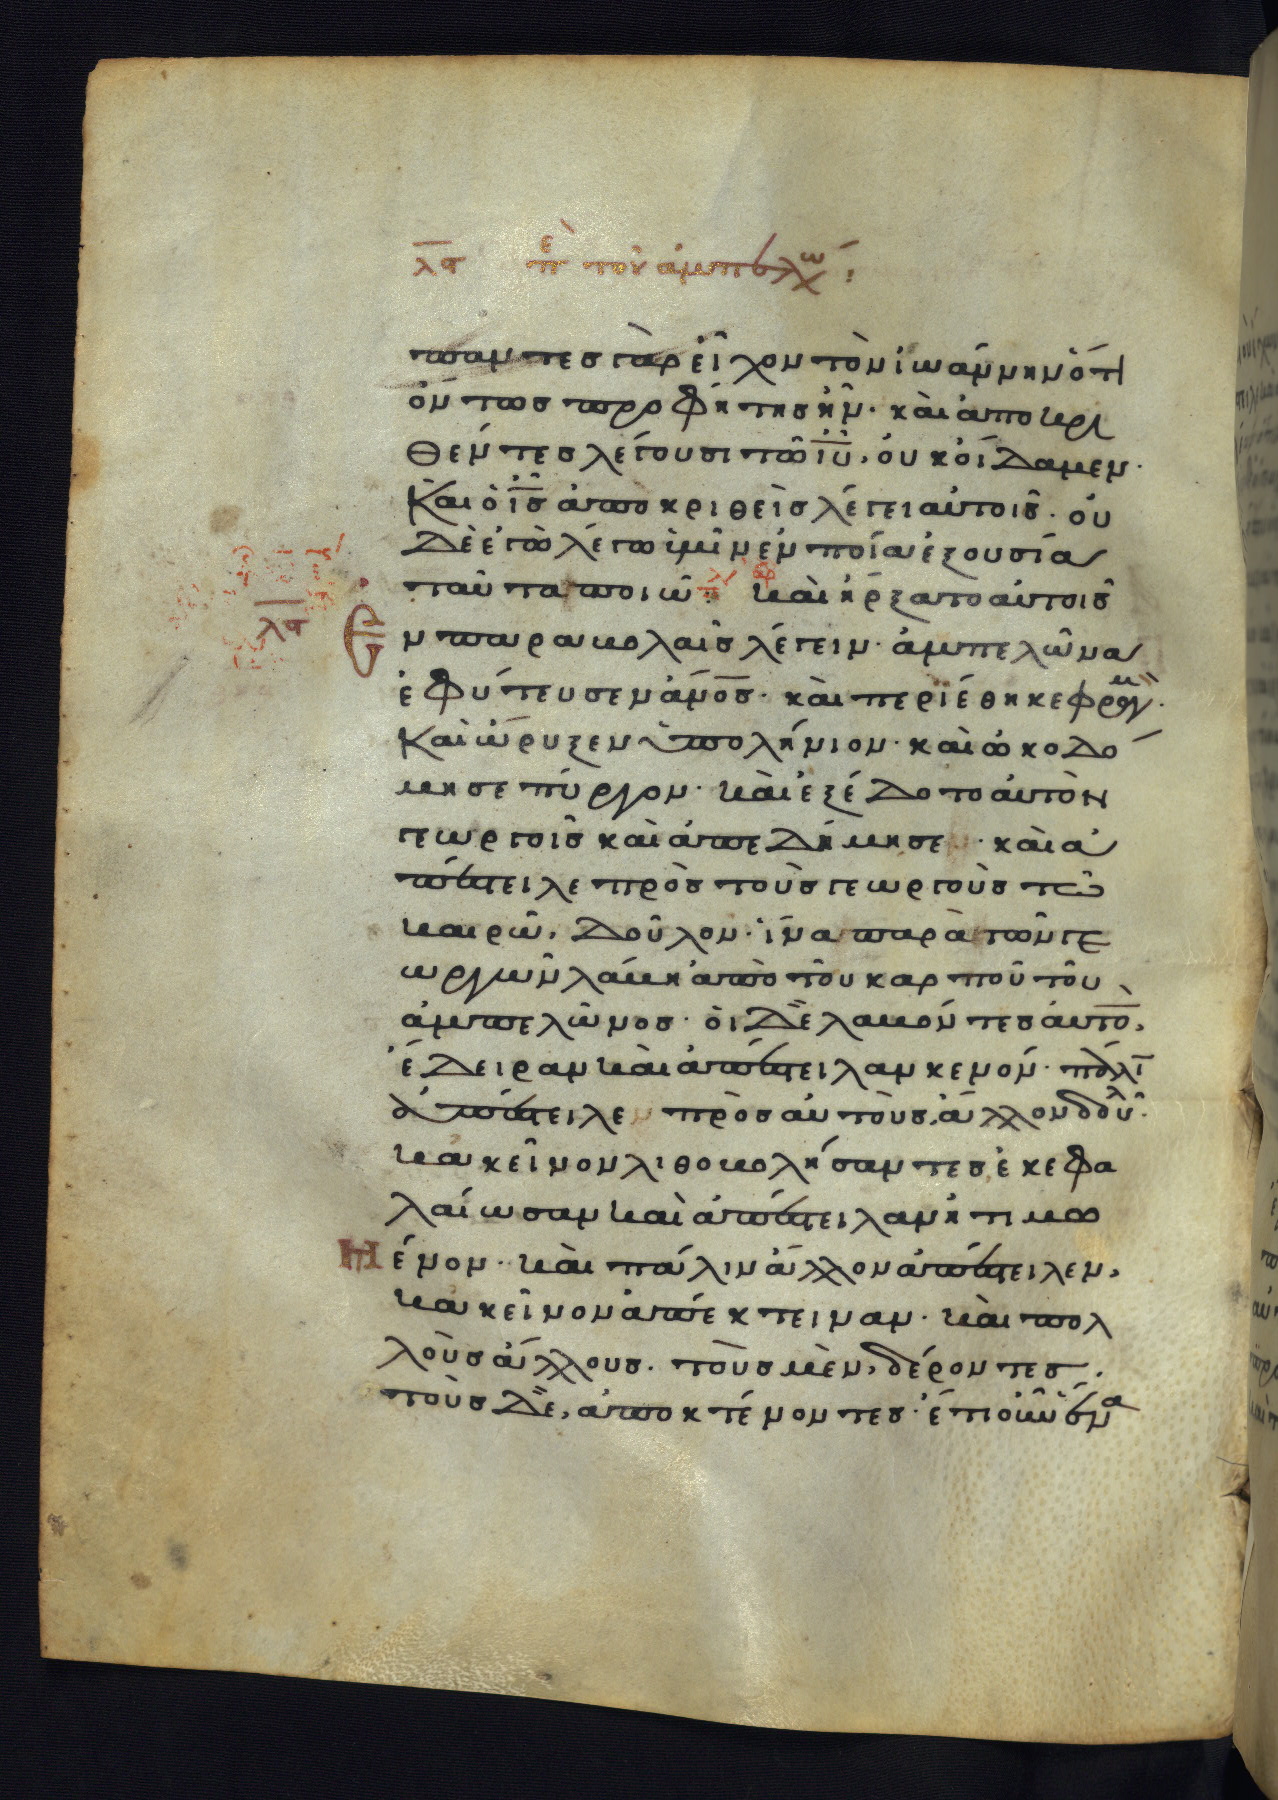 λϛ πε τοῦ ἀμπελῶ
παντες γὰρ εἶχον τὸν ἰωάννην ὅτι
ὄντως προφήτης ἦν· καὶ ἀποκρι
θέντες λέγουσι τῶ ιυ, οὐκ οἴδαμεν·
Καὶ ὁ ις ἀποκριθεὶς λέγει αὐτοῖς· οὐ
δὲ ἐγὼ λέγω ὑμῖν ἐν ποία ἐξουσία
ταῦτα ποιῶ: καὶ ἤρξατο αὐτοῖς
λϛ
Ἐν παραβολαῖς λέγειν· ἀμπελῶνα
ἐφύτευσεν ἄνος· καὶ περιέθηκε φραγμὸν·
Καὶ ὤρυξεν ὑπολήνιον· καὶ ὠκοδό
μησε πύργον· καὶ ἐξέδοτο αὐτὸν
γεωργοῖς καὶ ἀπεδήμησε· καὶ ἀ
πέστειλε πρὸς τοὺς γεωργοὺς τῶ
καιρῶ, δοῦλον· ἵνα παρὰ τῶν γε
ωργῶν λάβη ἀπὸ τοῦ καρποῦ τοῦ
ἀμπελῶνος· οἱ δὲ λαβόντες αὐτὸ,
ἔδειραν καὶ ἀπέστειλαν κενόν· πάλι
ἀπέστειλε πρὸς αὐτοὺς, ἄλλον δοῦλ·
κακεῖνον λιθοβολήσαντες ἐκεφα
λαίωσαν καὶ ἀπέστειλαν ἠτιμω
μένον· καὶ πάλιν ἄλλον ἀπέστειλεν,
κακεῖνον ἀπέκτειναν· καὶ πολ
λοὺς ἄλλους· τοὺς μὲν, δέροντες·
τοὺς δὲ, ἀποκτένοντες· ἔτι οὖν ἕνα